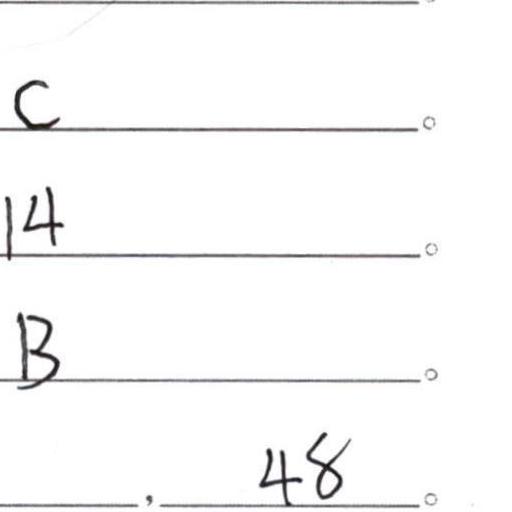 C。
14。
B。
, 48。